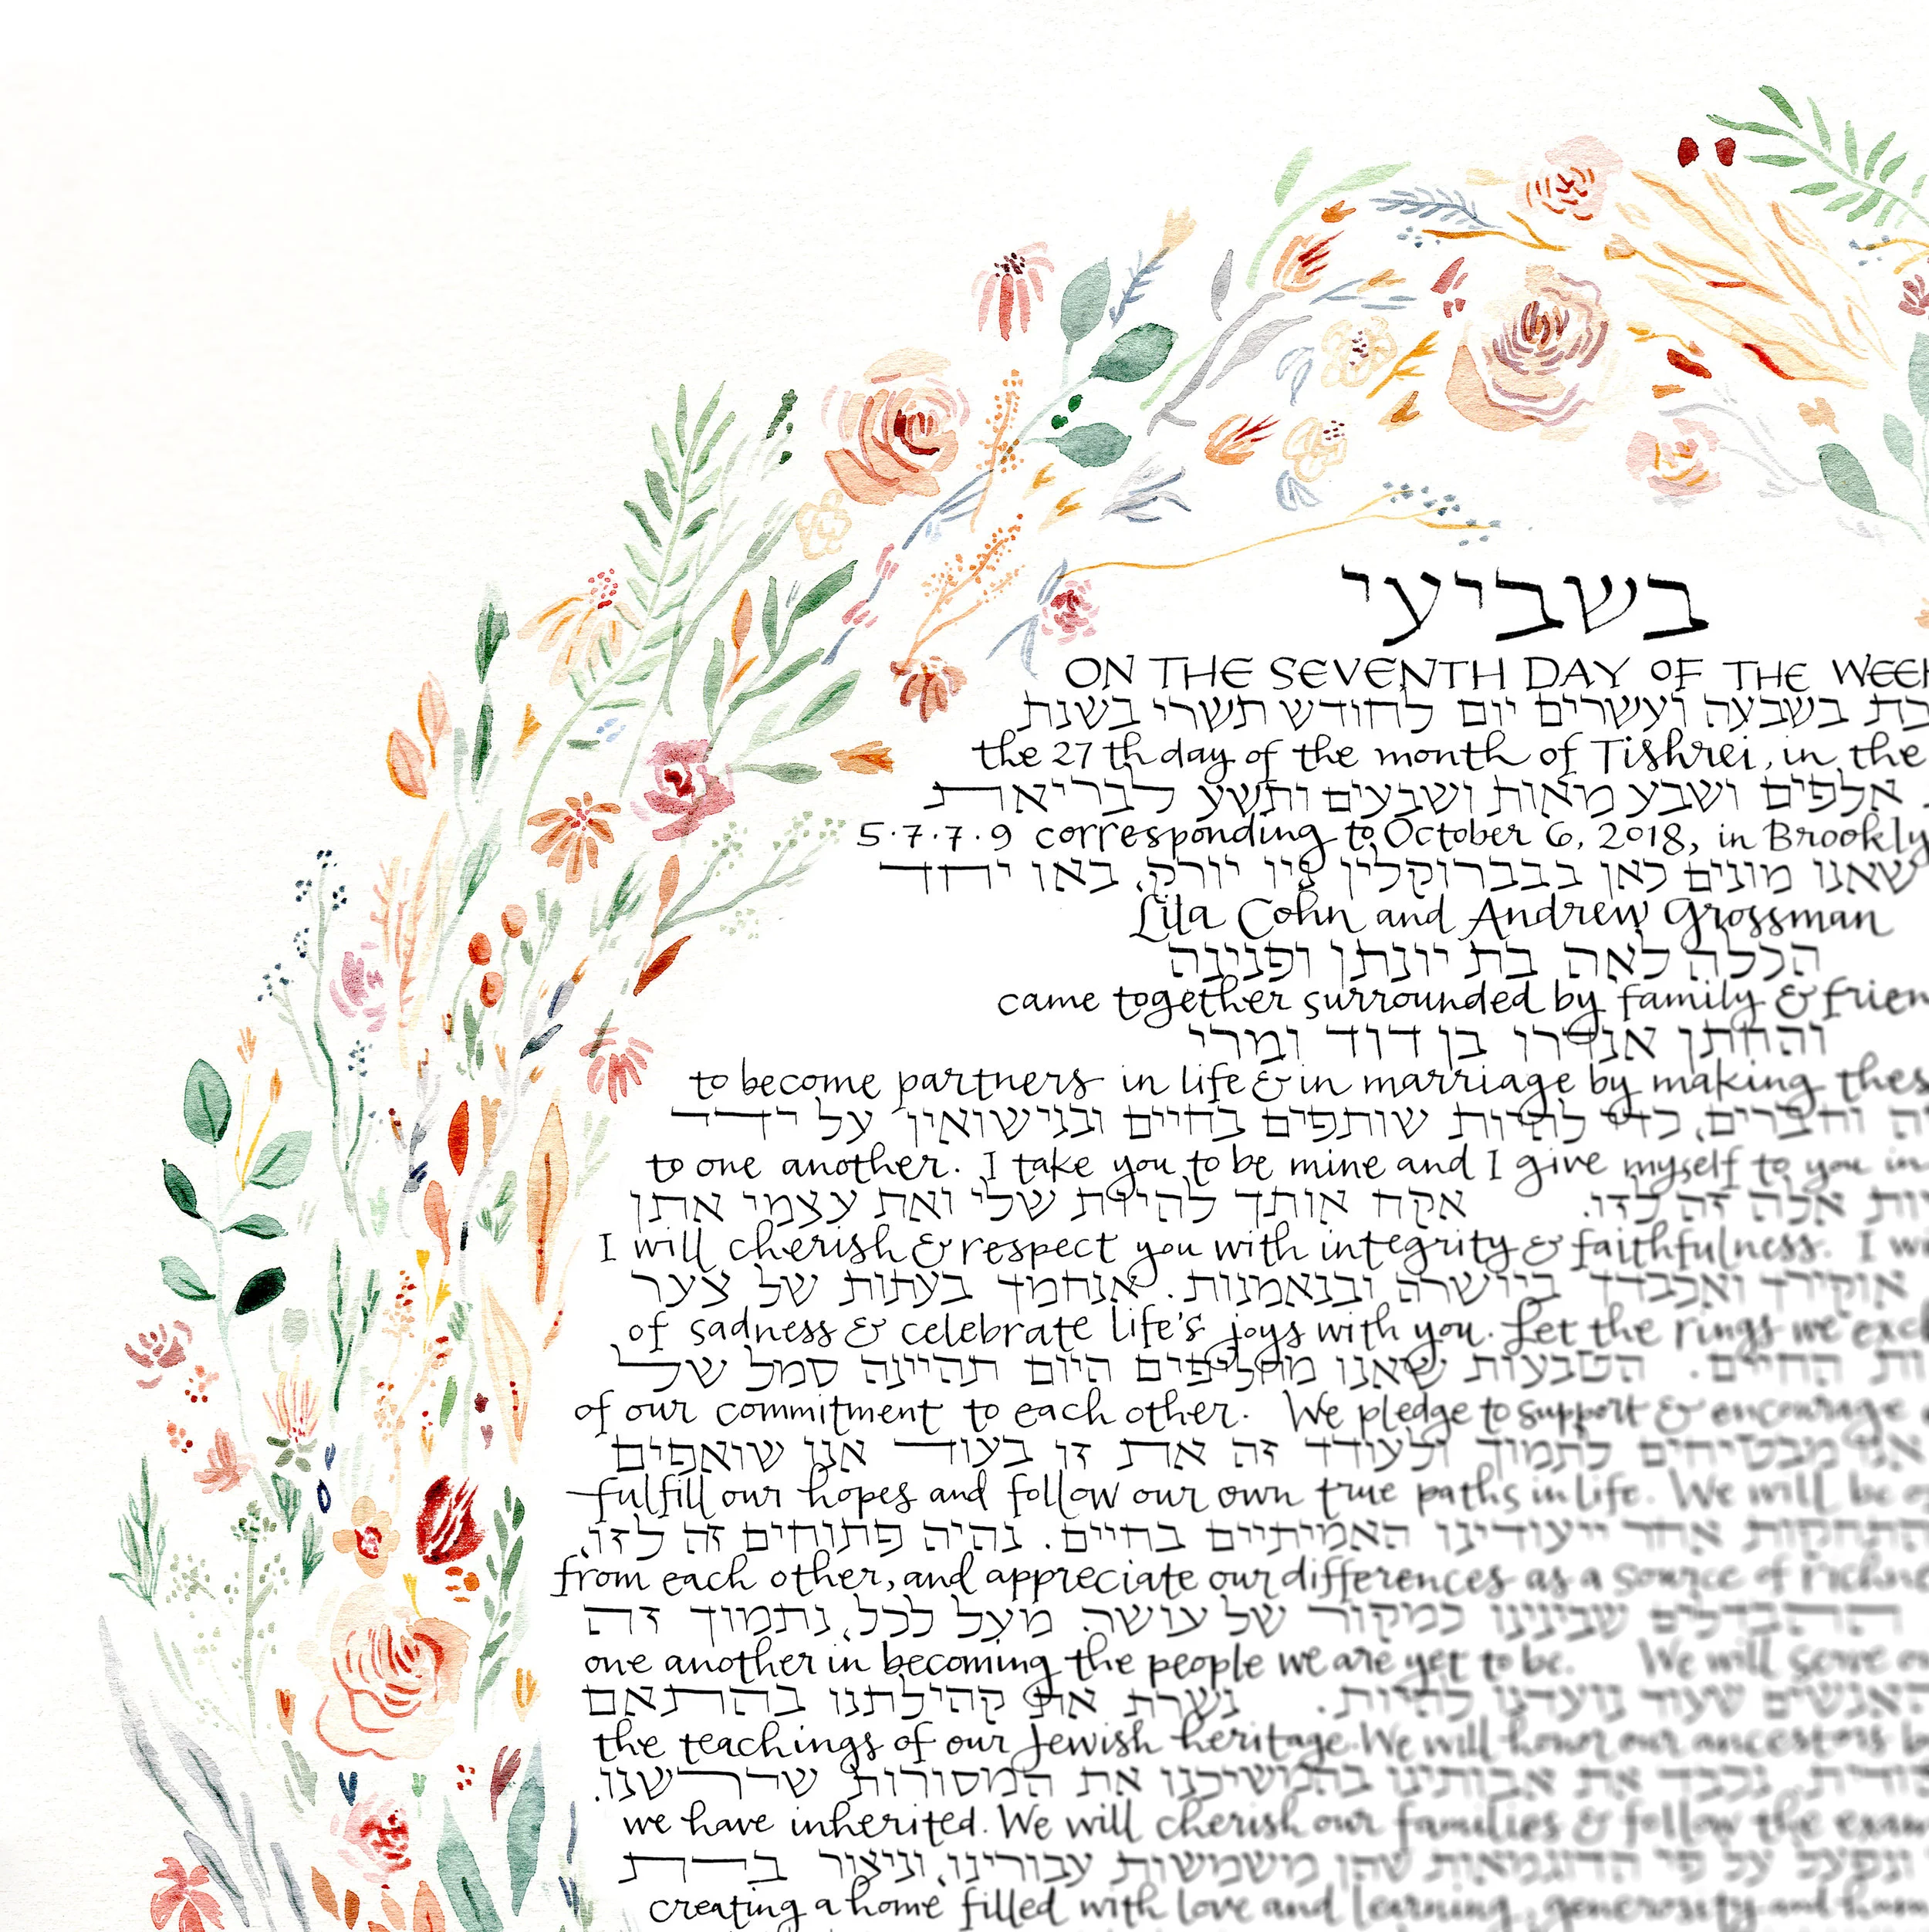 בשביעי
ON THE SEVENTH DAY OF THE WEEK
בשבעה ועשרים יום לחודש תשרי בשנת
the 27th day of the month of Tishrei, in the
אלפים ושבע מאות ושבעים ותשע לבריאת
5·7·7·9 corresponding to October 6, 2018, in Brookly
שאנו מונים כאן בברוקלין ניו יורק, באו יחד
Lila Cohn and Andrew Grossman
הכלה לאה בת יונתן ופנינה
came together surrounded by family & frien
והחתן אנדרו בן דוד ומרי
to become partners in life & in marriage by making thes
וחברים, כדי להיות שותפים בחיים ובנישואין על ידי
to one another. I take you to be mine and I give myself to you in
אלה זה לזו. אקח אותך להיות שלי ואת עצמי אתן
I will cherish & respect you with integrity & faithfulness. I wi
אוקיר ואכבדך ביושרה ובנאמנות. אנחמך בעתות של צער
of sadness & celebrate life's joys with you. Let the rings we exch
החיים. הטבעות שאנו מחליפים היום תהיינה סמל של
of our commitment to each other. We pledge to support & encourage
אנו מבטיחים לתמוך ולעודד זה את זו בעוד אנו שואפים
fulfill our hopes and follow our own true paths in life. We will be
אחר ייעודינו האמיתיים בחיים. נהיה פתוחים זה לזו,
from each other, and appreciate our differences as a source of richne
ההבדלים שבינינו כמקור של עושר. מעל לכל, נתמוך זה
one another in becoming the people we are yet to be. We will serve
האנשים שעוד נועדנו להיות. נשרת את קהילתנו בהתאם
the teachings of our Jewish heritage. We will honor our ancestors
נכבד את אבותינו בהמשיכנו את המסורות שירשנו.
we have inherited. We will cherish our families & follow the exam
על פי הדוגמאות שהן משמשות עבורינו, וניצור בית
creating a home filled with love and learning, generosity and